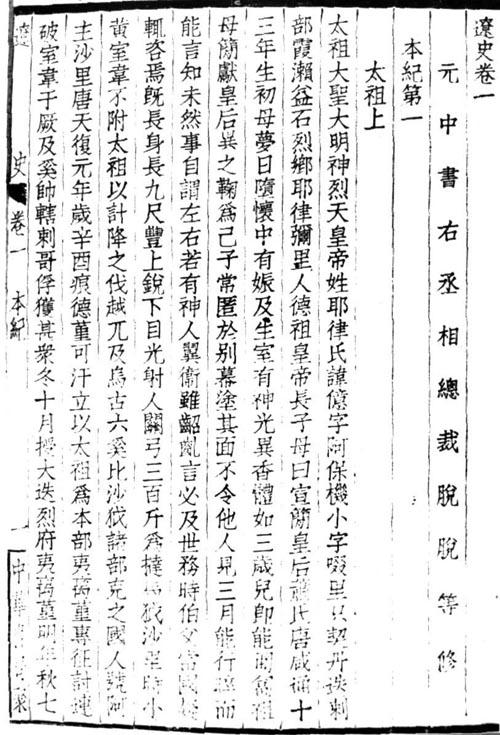 遼史卷一
元中書右丞相總裁脫脫等修
本紀第一
太祖上
太祖大聖大明神烈天皇帝姓耶律氏諱億字阿保機小字啜里只契丹迭剌
部霞瀨益石烈鄉耶律彌里人德祖皇帝長子母曰宣簡皇后蕭氏唐咸通十
三年生初母夢日墮懷中有娠及生室有神光異香體如三歲兒即能匍匐祖
母簡獻皇后異之鞠爲己子常匿於別幕塗其面不令他人見三月能行晬而
能言知未然事自謂左右若有神人翼衞雖齠齔言必及世務時伯父當國疑
輒咨焉旣長身長九尺豐上銳下目光射人關弓三百斤爲撻馬狘沙里時小
黃室韋不附太祖以計降之伐越兀及烏古六奚比沙狘諸部克之國人號阿
主沙里唐天復元年歲辛酉痕德菫可汗立以太祖爲本部夷离菫專征討連
破室韋于厥及奚帥轄剌哥俘獲甚衆冬十月授大迭烈府夷离菫明年秋七
遼 史 卷一 本紀 一 中華書局聚